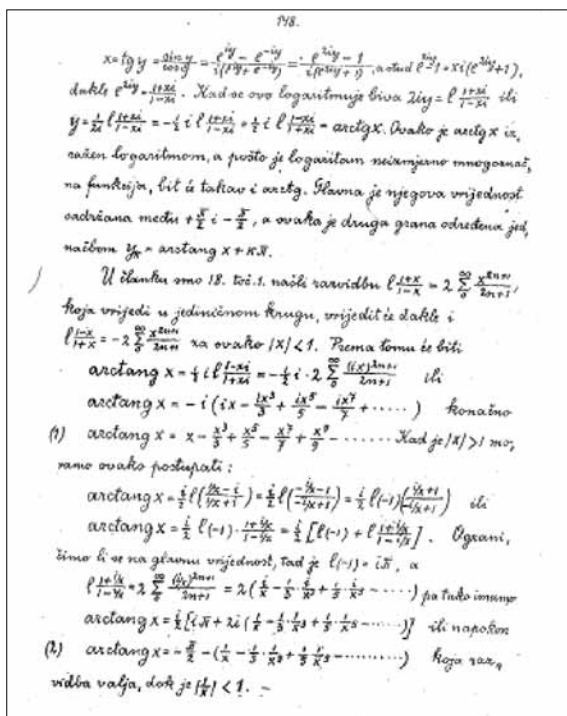 148.
x = tg y = sin y / cos y = (e^{iy} − e^{−iy}) / i(e^{iy} + e^{−iy}) = (e^{2iy} − 1) / i(e^{2iy} + 1), a otud e^{2iy} − 1 = xi(e^{2iy} + 1),
dakle e^{2iy} = (1+xi)/(1−xi). Kad se ovo logaritmuje biva 2iy = l (1+xi)/(1−xi) ili
y = 1/2i l (1+xi)/(1−xi) = −i/2 l (1+xi)/(1−xi) = i/2 l (1−xi)/(1+xi) = arctg x. Ovako je arctg x iz,
ražen logaritmom, a pošto je logaritam neizmjerno mnogoznač,
na funkcija, bit će takav i arctg. Glavna je njegova vrijednost
sadržana među +π/2 i −π/2, a ovaka je druga grana određena jed,
načbom y_k = arctang x + kπ.
U članku smo 18. toč. 1. našli razvidbu l (1+x)/(1−x) = 2 ∑_0^∞ x^{2n+1}/(2n+1),
koja vrijedi u jediničnom krugu, vrijedit će dakle i
l (1−x)/(1+x) = −2 ∑_0^∞ x^{2n+1}/(2n+1) za ovako |x| < 1. Prema tomu će biti
arctang x = i/2 l (1−xi)/(1+xi) = −i/2 · 2 ∑_0^∞ (ix)^{2n+1}/(2n+1) ili
arctang x = −i (ix − ix³/3 + ix⁵/5 − ix⁷/7 + ·····) konačno
(1) arctang x = x − x³/3 + x⁵/5 − x⁷/7 + x⁹/9 − ······ Kad je |x| > 1 mo,
ramo ovako postupati:
arctang x = i/2 l (1/x − i)/(1/x + i) = i/2 l (−i/x − 1)/(−i/x + 1) = i/2 l (−1) (i/x + 1)/(−i/x + 1) ili
arctang x = i/2 l(−1) · (1 + i/x)/(1 − i/x) = i/2 [l(−1) + l (1 + i/x)/(1 − i/x)]. Ograni,
čimo li se na glavnu vrijednost, tad je l(−1) = iπ, a
l (1 + i/x)/(1 − i/x) = 2 ∑_0^∞ (i/x)^{2n+1}/(2n+1) = 2 (i/x − 1/3 · i/x³ + 1/5 · i/x⁵ − ·····) pa tako imamo
arctang x = i/2 [iπ + 2i (1/x − 1/3 · 1/x³ + 1/5 · 1/x⁵ − ·····)] ili napokon
(2) arctang x = −π/2 − (1/x − 1/3 · 1/x³ + 1/5 · 1/x⁵ − ········) koja raz,
vidba valja, dok je |1/x| < 1. –